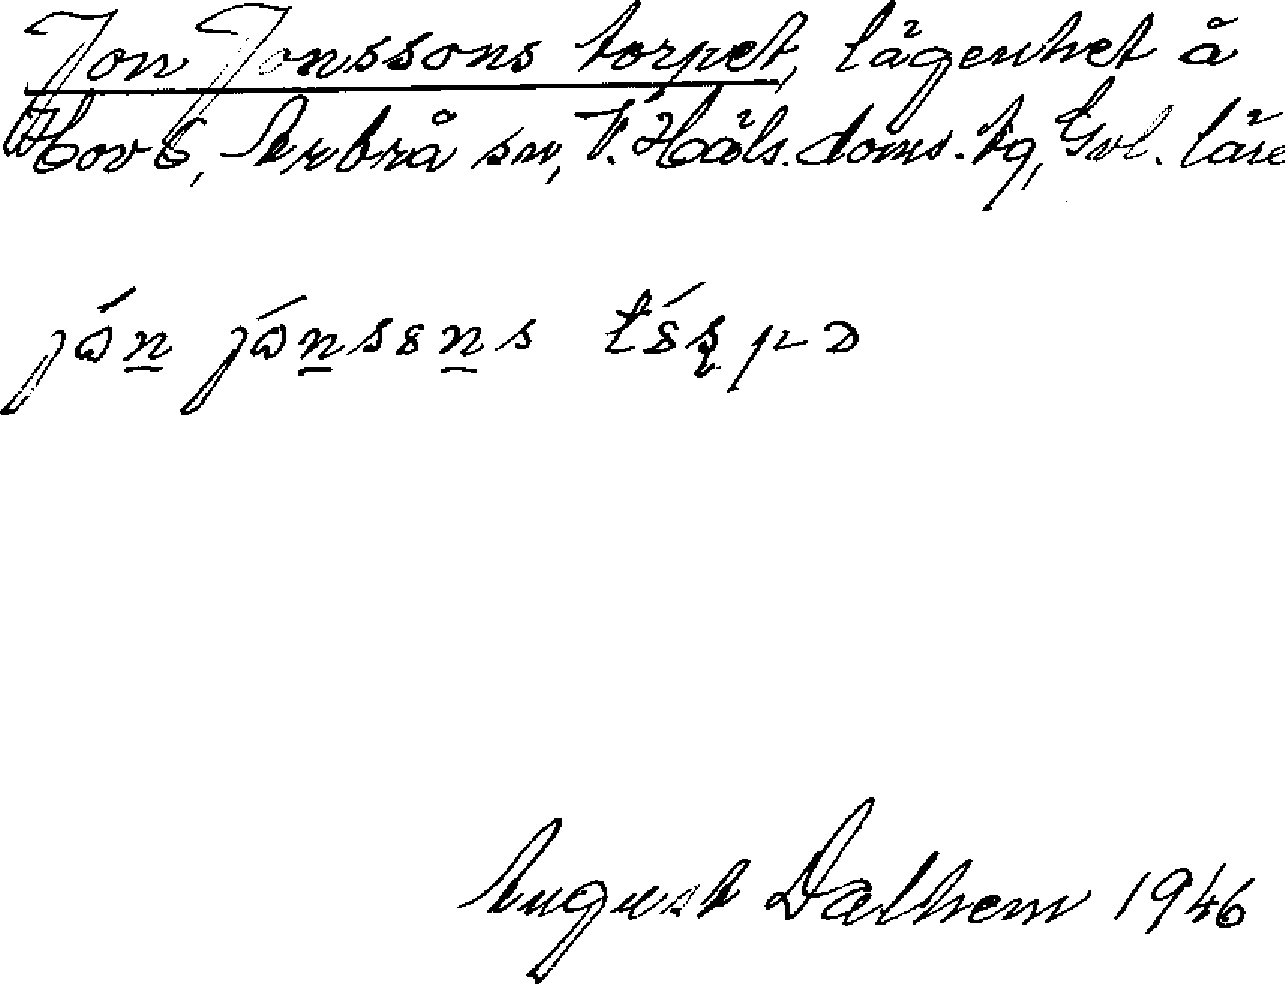 Jon Jonssons torpet, lägenhet å
Hov 6, Arbrå sn, V. Häls. doms. tg, Gvl. län
jón jónssons
August Dalhem 1946